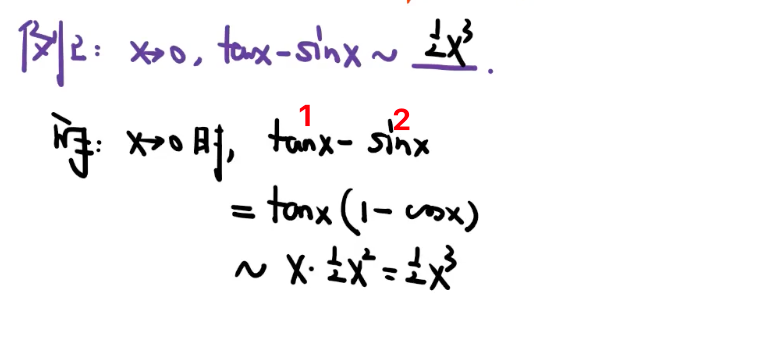 例2: x→0, tanx-sinx ~ ½x³.
1 2
证: x→0 时, tanx- sinx
= tanx(1-cosx)
~ x·½x²=½x³